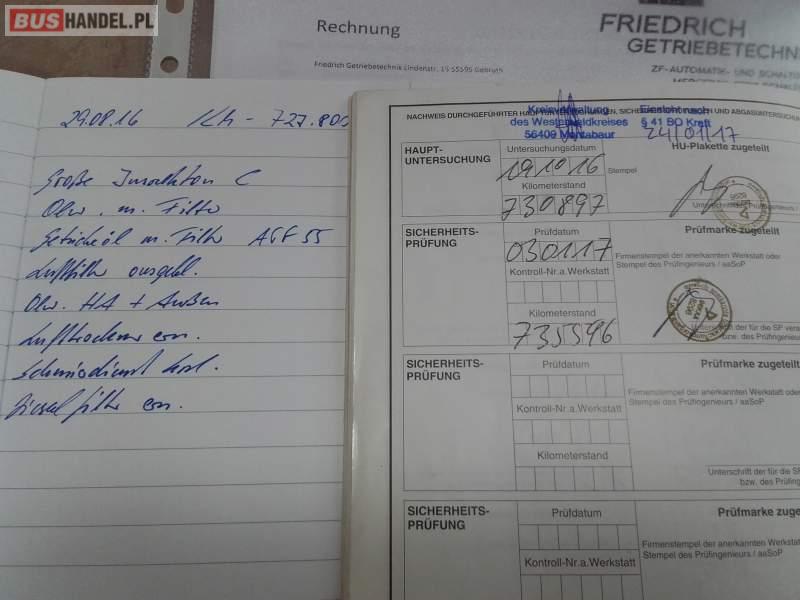 BUSHANDEL.PL
Rechnung
FRIEDRICH
GETRIEBETECHN
Friedrich Getriebetechnik Lindenstr. 15 55595 Gebroth
ZF-AUTOMATIK- UND SCHALT
29.08.16 Km - 727.800
Große Inspektion C
Ölw. m. Filter
Getriebeöl m. Filter
Luftfilter
Ölw. HA + Außen
Lufttrockner ern.
Schmierdienst
Dieselfilter ern.
NACHWEIS DURCHGEFÜHRTER HAUPTUNTERSUCHUNGEN, SICHERHEITSPRÜFUNGEN UND ABGASUNTERSUCHU
Kreisverwaltung
des Westerwaldkreises
56409 Montabaur
Einsicht nach
§ 41 BO Kraft
24/01/17
HAUPT-
UNTERSUCHUNG
Untersuchungsdatum
191016
Stempel
Kilometerstand
730897
HU-Plakette zugeteilt
SICHERHEITS-
PRÜFUNG
Prüfdatum
030117
Kontroll-Nr.a.Werkstatt
Kilometerstand
735596
Prüfmarke zugeteilt
Firmenstempel der anerkannten Werkstatt oder
Stempel des Prüfingenieurs / aaSoP
Unterschrift der für die SP veran
bzw. des Prüfingenieurs
SICHERHEITS-
PRÜFUNG
Prüfdatum
Kontroll-Nr.a.Werkstatt
Kilometerstand
Prüfmarke zugeteilt
Firmenstempel der anerkannten Werkstatt oder
Stempel des Prüfingenieurs / aaSoP
Unterschrift der für die SP
bzw. des Prüfingenieurs
SICHERHEITS-
PRÜFUNG
Prüfdatum
Kontroll-Nr.a.Werkstatt
Prüfmarke zuge
Firmenstempel der anerkannten Werkstatt
Stempel des Prüfingenieurs / aaSoP